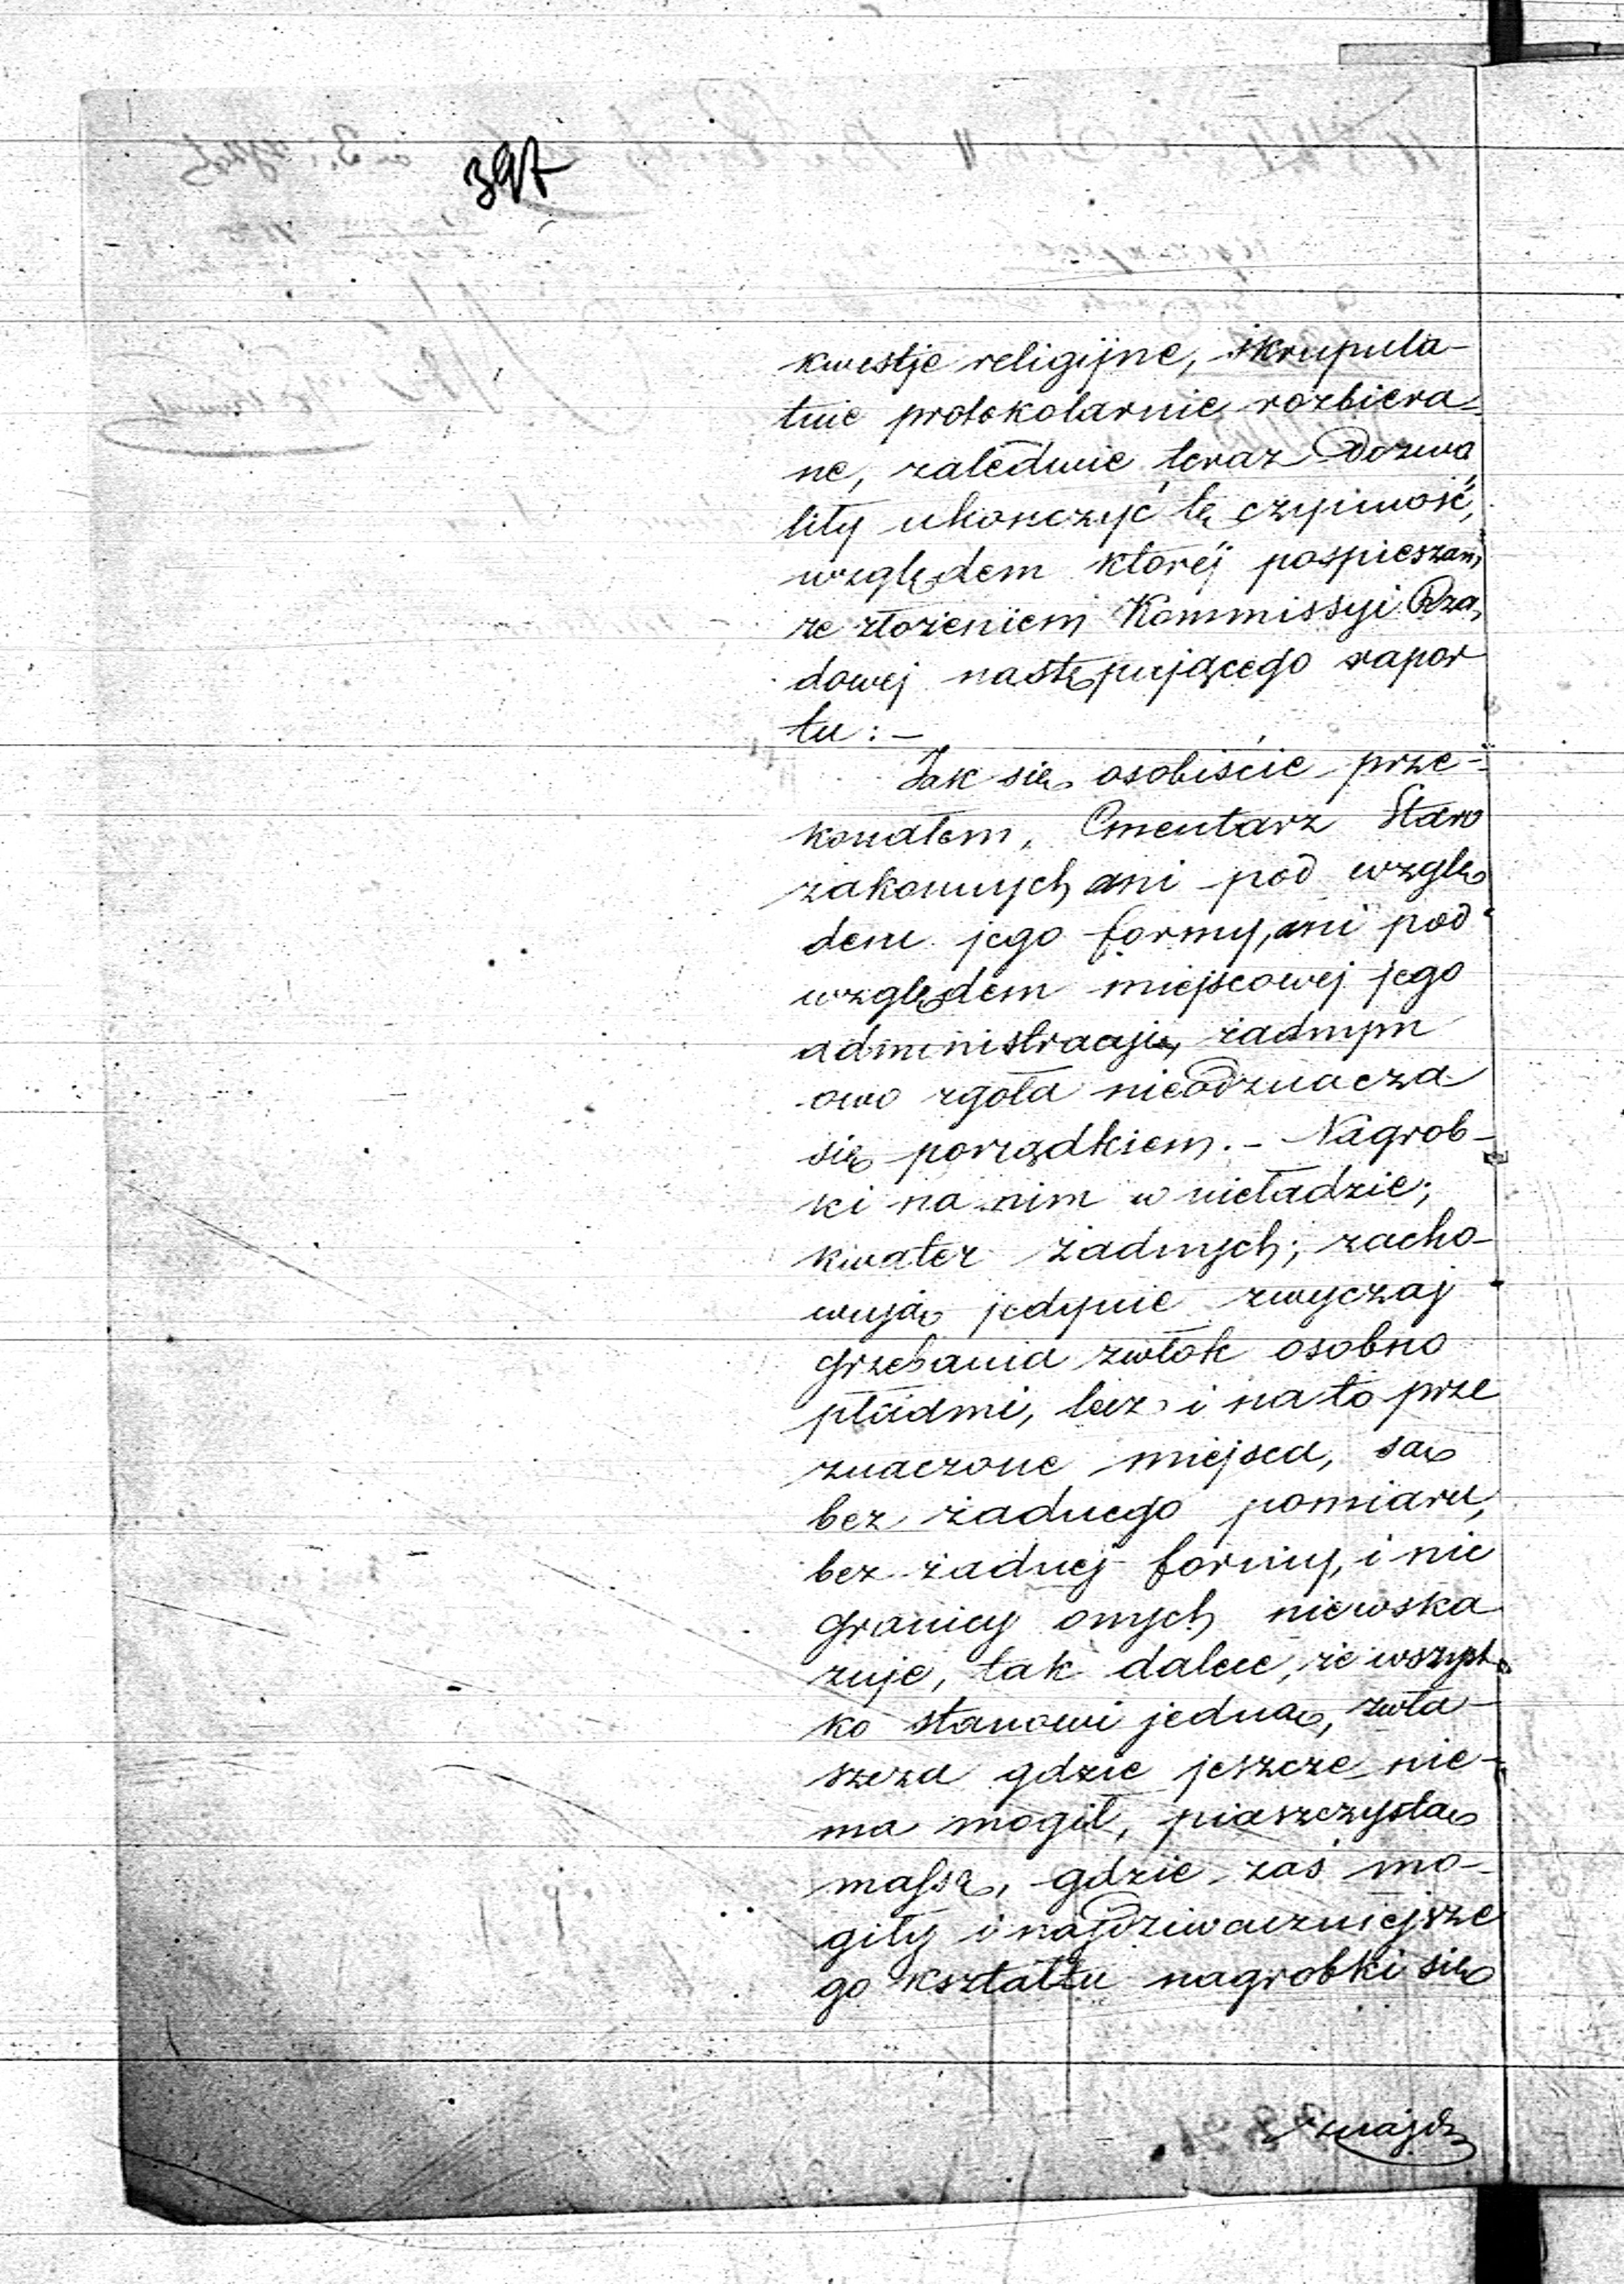 397
kwestje religijne, skrupula-
tnie protokolarnie rozbiera-
ne, zaledwie teraz dozwo
liły ukończyć tę czynność,
względem której pospieszam
ze złożeniem Kommissyi Rzą
dowej następującego rapor
tu: -
Jak się osobiście prze-
konałem, Cmentarz Staro
zakonnych ani pod wzglę
dem jego formy, ani pod
względem miejscowej jego
administracji, żadnym
owo zgoła nieodznacza
się porządkiem. - Nagrob-
ki na nim w nieładzie;
kwater żadnych; zacho-
wują jedynie zwyczaj
grzebania zwłok osobno
płciami, lecz i na to prze
znaczone miejsca, są
bez żadnego pomiaru,
bez żadnej formy, i nic
granicy onych niewska
zuje, tak dalece, że wszyst
ko stanowi jedną, zwła-
szcza gdzie jeszcze nie-
ma mogił, piaszczystą
massę, gdzie zaś mo-
giły i najdziwaczniejsze
go kształtu nagrobki się
znajdą